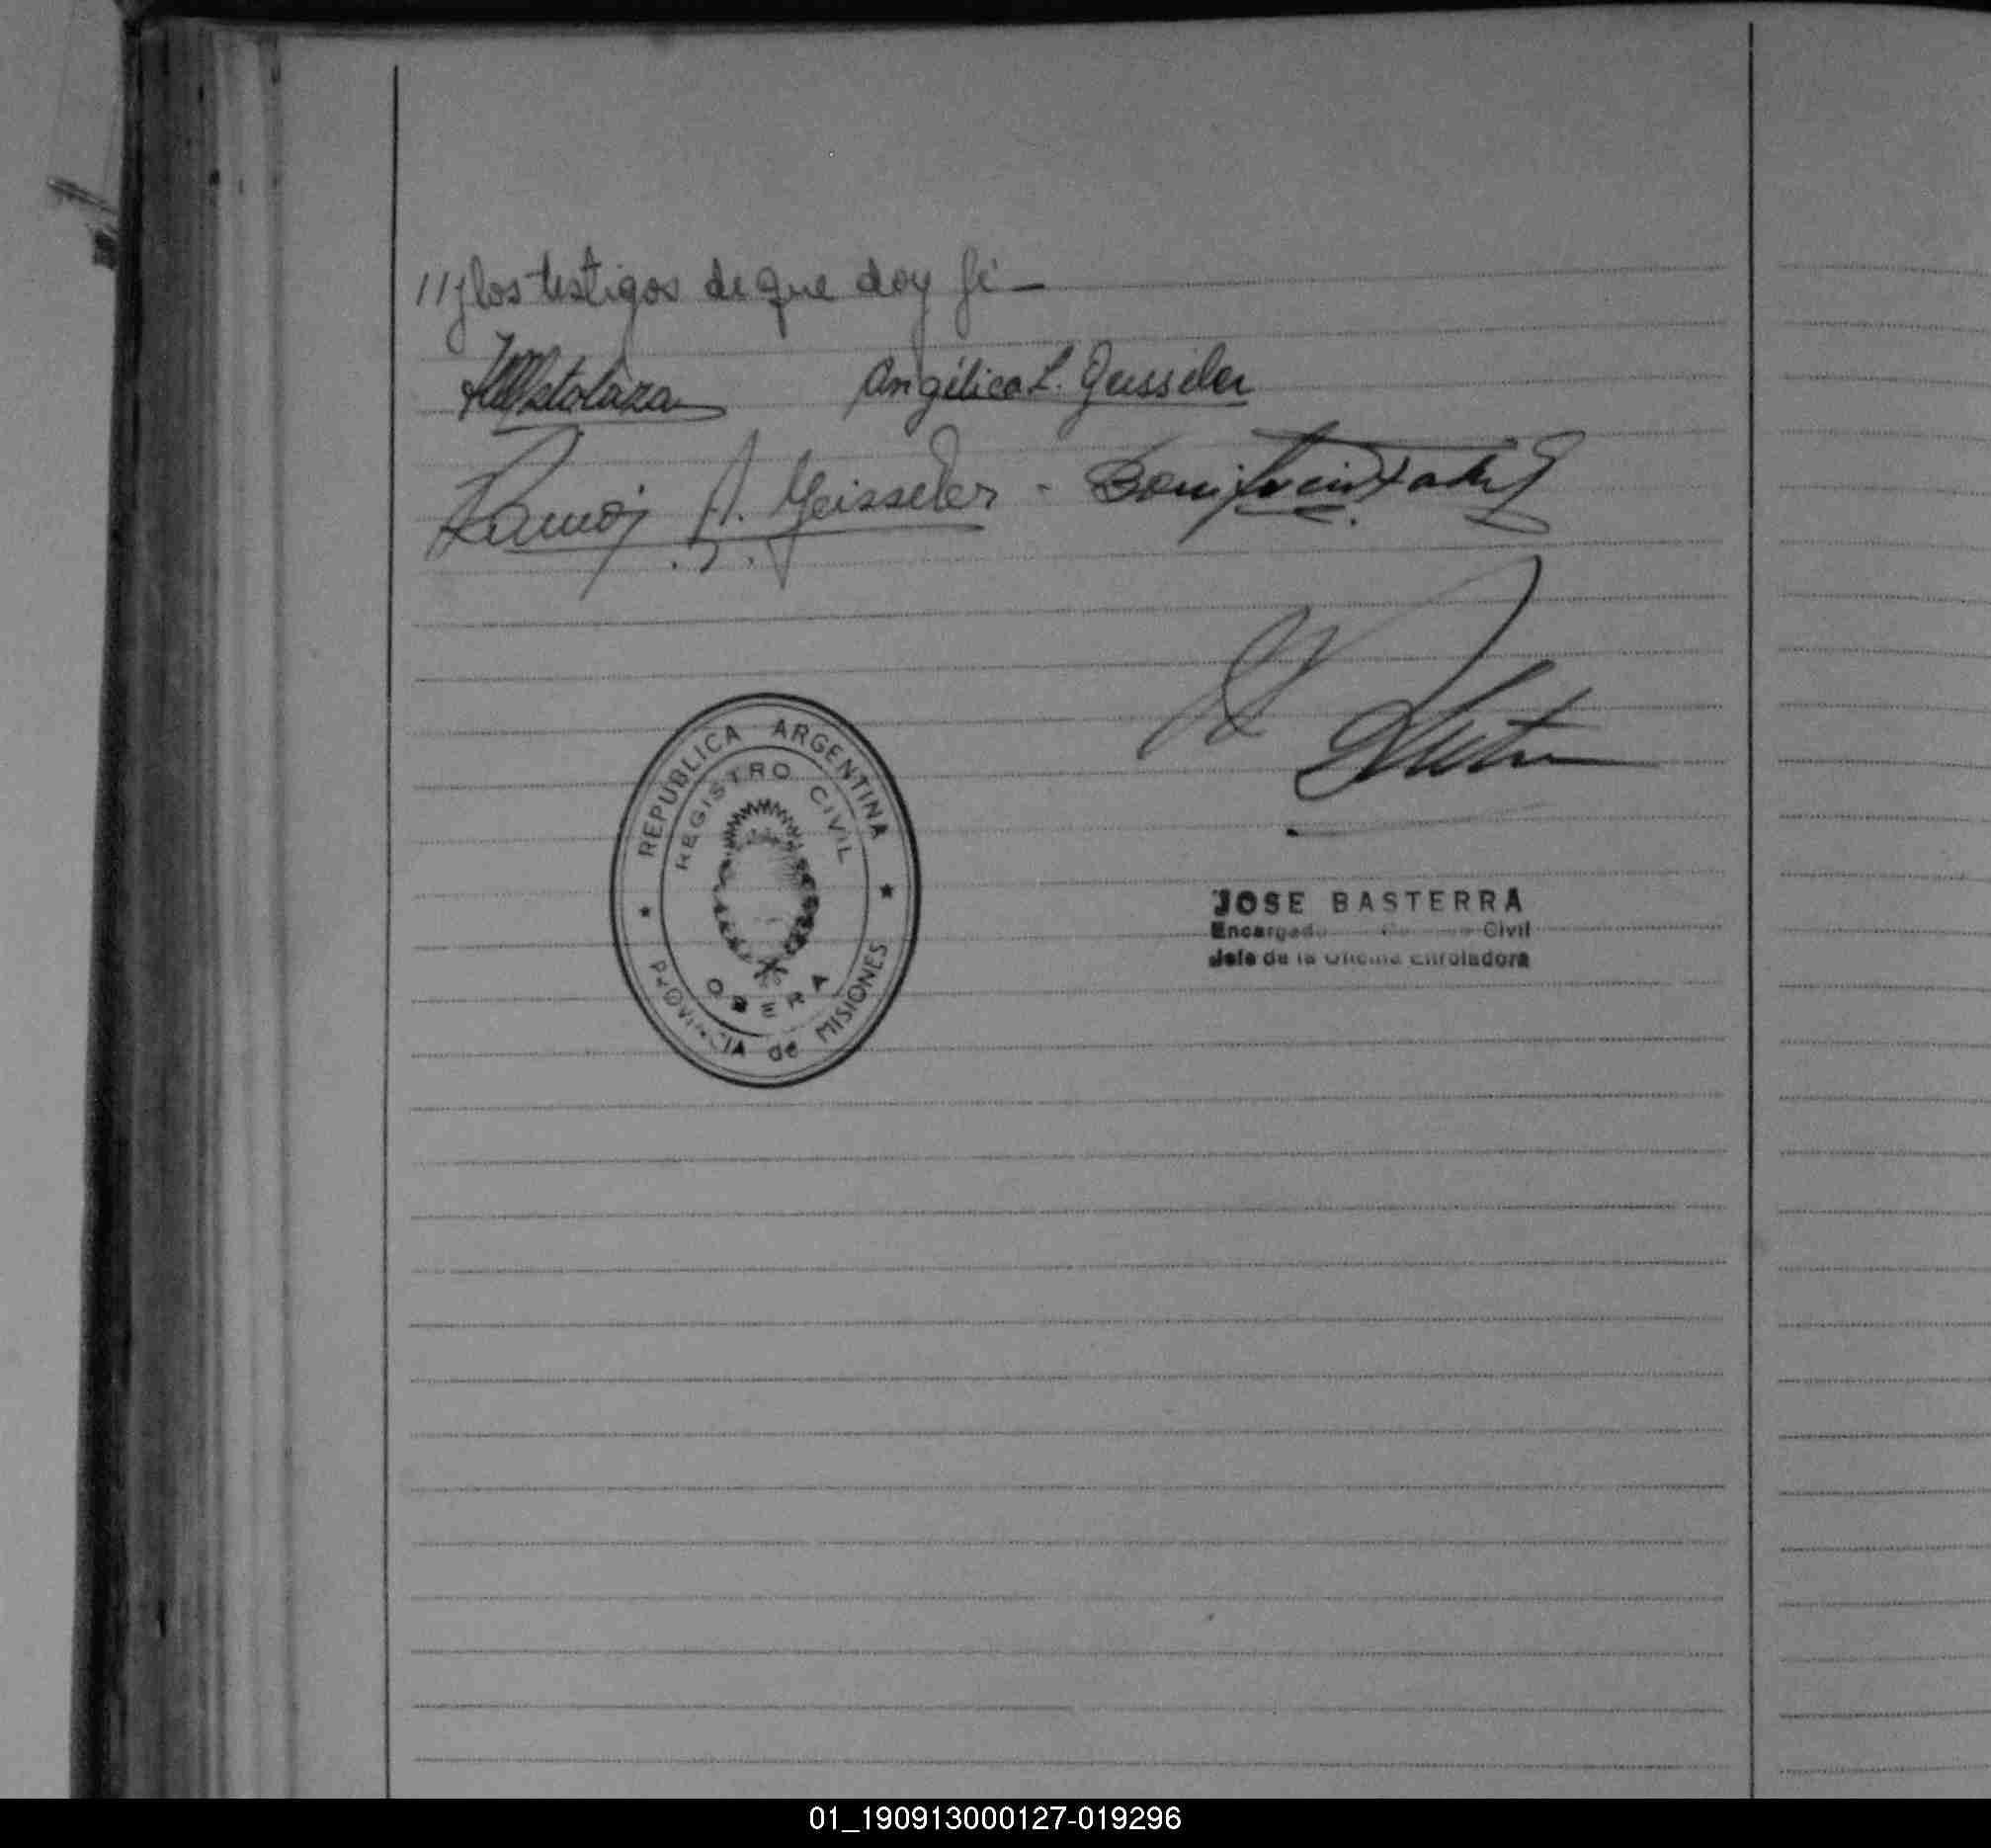 //y los testigos de que doy fé—
Angélica L. Geisseler
Ramón A. Geisseler -
REPÚBLICA ARGENTINA
REGISTRO CIVIL
OBERA
PROVINCIA de MISIONES
JOSE BASTERRA
Encargado Civil
Jefe de la Oficina Enroladora
01_190913000127-019296